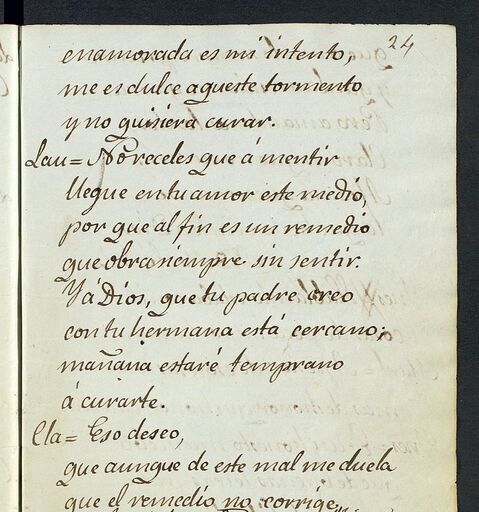 24
enamorada es mi intento,
me es dulce aqueste tormento
y no quisiera curar.
Lau= No receles que á mentir
llegue en tu amor este medio,
por que al fin es un remedio
que obra siempre sin sentir.
Y á Dios, que tu padre creo
con tu hermana está cercano;
mañana estaré temprano
á curarte.
Cla= Eso deseo,
que aunque de este mal me duela
que el remedio no corrige,